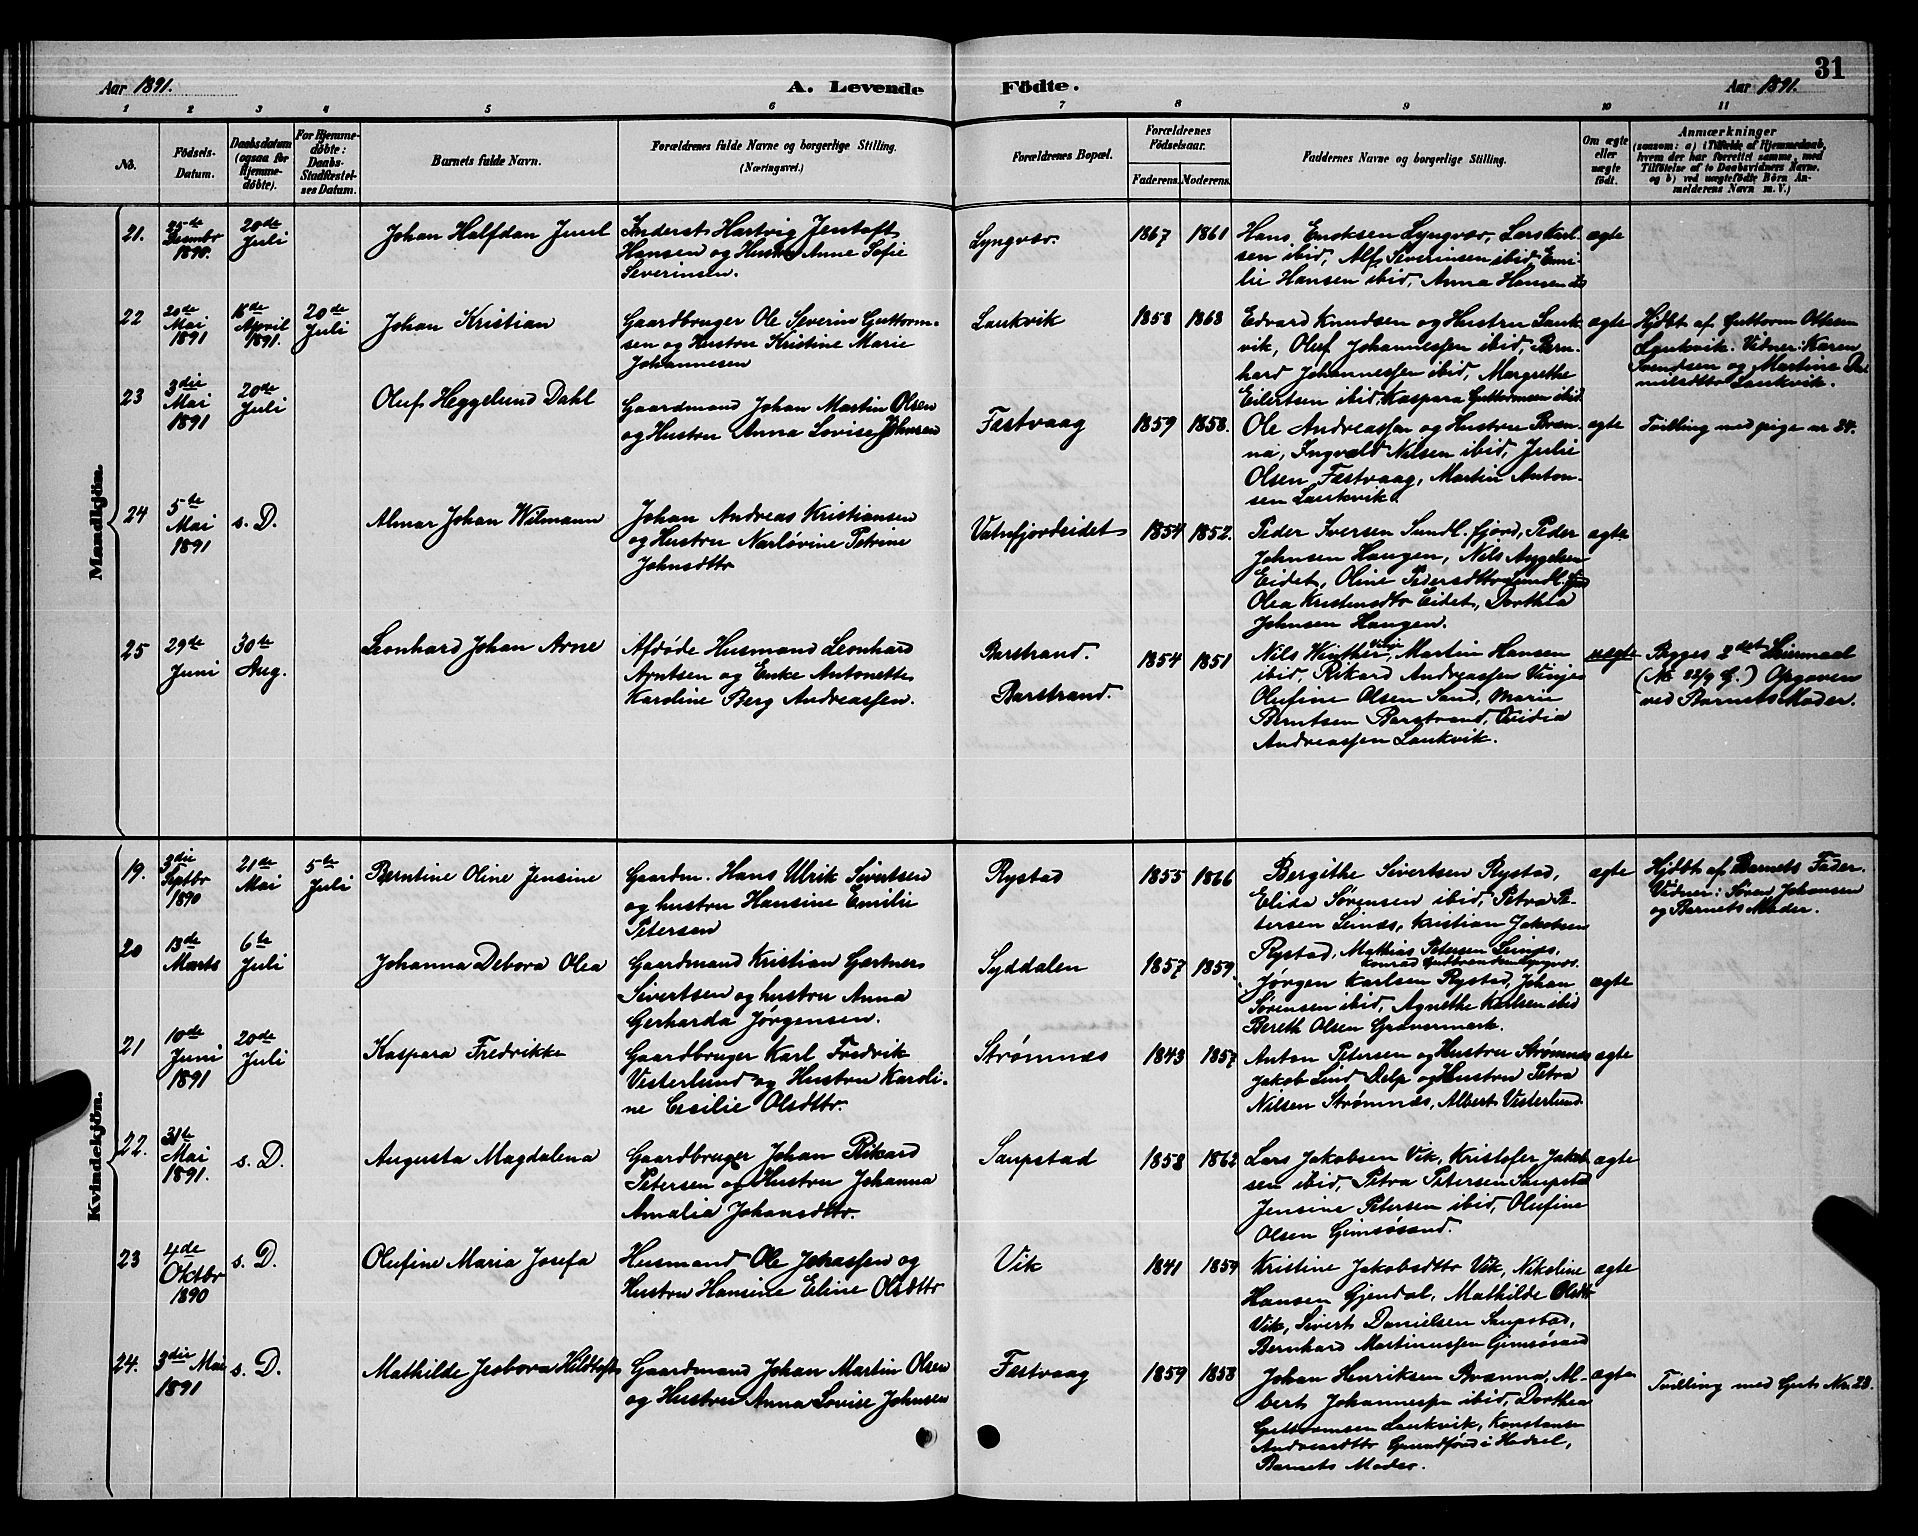 31
Aar 1891.
A. Levende Födte.
Aar 1891.
1 2 3 4 5 6 7 8 9 10 11
No.
Födsels-
Datum.
Daabsdatum
(ogsaa for
Hjemme-
döbte).
For Hjemme-
döbte:
Daabs-
Stadfæstel-
ses Datum.
Barnets fulde Navn.
Forældrenes fulde Navne og borgerlige Stilling.
(Næringsvei.)
Forældrenes Bopæl.
Forældrenes
Födselsaar.
Faderens. Moderens.
Faddernes Navne og borgerlige Stilling.
Om ægte
eller
uægte
födt.
Anmærkninger
(saasom: a) i Tilfælde af Hjemmedaab,
hvem der har forrettet samme, med
Tilföielse af to Daabsvidners Navne,
og b) ved uægtefödte Börn An-
melderens Navn m. V.)
Mandkjön.
21.
25de
Desembr
1890.
20de
Juli
Johan Halfdan Juul
Inderst Hartvig Jentoft
Hansen og Hustru Anne Sofie
Severinsen.
Lyngvær.
1867 1861
Hans Eriksen Lyngvær, Lars Karl-
sen ibid, Alf Severinsen ibid, Emi-
lie Hansen ibid, Anna Hansen
ægte
22
20de
Mai
1891
18de
April
1891.
20de
Juli
Johan Kristian
Gaardbruger Ole Severin Guttorm-
sen og Hustru Kristine Marie
Johannesen
Laukvik
1858 1863
Edvard Knudsen og Hustru Lauk-
vik, Oluf Johannessen ibid, Bern-
hard Johannessen ibid, Margrethe
Eilertsen ibid, Kaspara Guttormsen ibid
ægte
Hjdbt af Guttorm Ottesen
Laukvik. Vidner: Karen
Svendsen og Martine Da-
nielsdttr Laukvik.
23
3die
Mai
1891
20de
Juli
Oluf Heggelund Dahl
Gaardmand Johan Martin Olsen
og Hustru Anna Lovise Johnsen
Festvaag
1859 1858.
Ole Andreassen og Hustru Bran-
na, Ingvald Nilsen ibid, Julie
Olsen Festvaag, Martin Anton-
sen Laukvik
ægte
Tvilling med pige nr 24.
24
5te
Mai
1891
s. D.
Almar Johan Wilmann
Johan Andreas Kristiansen
og Hustru Narlovine Petrine
Johnsdttr
Vatnfjordeidet
1854 1852.
Peder Iversen Sundl. fjord, Peder
Johnsen Haugen, Nils Angelsen
Eidet, Oline Pedersdttr Sundl.
Olea Kristensdtr Eidet, Dorthea
Johnsen Haugen.
ægte
25
29de
Juni
30te
Aug.
Leonhard Johan Arne
Afdøde Husmand Leonhard
Arntsen og Enke Antonette
Karoline Berg Andreassen.
Barstrand.
Barstrand.
1854 1851
Nils Winther, Martin Hansen
ibid, Rikard Andreassen Vinje
Olufine Olsen Sand, Marie
Berntsen Barstrand, Ovidia
Andreassen Laukvik.
uægte
Begges 2det Leiermaal
Opgaven
ved Barnets Moder.
Kvindekjön.
19.
3die
Septbr
1890
21de
Mai
5te
Juli
Berntine Oline Jensine
Gaardm. Hans Ulrik Sivertsen
og hustru Hansine Emilie
Petersen
Rystad
1855 1866
Bergithe Sivertsen Rystad,
Elida Sørensen ibid, Petra Pe-
tersen Leinæs, Kristian Jakobsen
Rystad, Mathias Petersen Leinæs,
ægte
Hjdbt af Barnets Fader.
Vidner: Søren Johansen
og Barnets Moder.
20
13de
Marts
6te
Juli
Johanna Debora Olea
Gaardmand Kristian Gærtner
Sivertsen og hustru Anna
Gerharda Jørgensen.
Syddalen
1857 1859.
Konrad Gudbrandsen Lyngvær.
Jørgen Karlsen Rystad, Johan
Sørensen ibid, Agnethe Karlsen ibid
Bereth Olsen Gravermark.
ægte
21
10de
Juni
1891
20de
Juli
Kaspara Fredrikke
Gaardbruger Karl Fredrik
Vesterlund og Hustru Karoli-
ne Cesilie Olsdttr.
Strømnæs
1843 1857
Anton Petersen og Hustru Strømnæs
Jakob Lind Delp og Hustru Petra
Nilsen Strømnæs, Albert Vesterlund
ægte
22.
31te
Mai
1891.
s. D.
Augusta Magdalena
Gaardbruger Johan Rikard
Petersen og Hustru Johanna
Amalia Johansdttr.
Saupstad
1858 1862
Lars Jakobsen Vik, Kristofer Jakob-
sen ibid, Petra Petersen Saupstad
Jensine Petersen ibid, Olufine
Olsen Gimsøsand.
ægte
23
4de
Oktbr
1890
s. D.
Olufine Maria Josefa
Husmand Ole Johassen og
Hustru Hansine Eline Olsdttr
Vik
1841 1859
Kristine Jakobsdttr Vik, Nikoline
Hansen Gjendal, Mathilde Olsdttr
Vik, Sivert Danielsen Saupstad,
Bernhard Martinussen Gimsøsand
ægte
24.
3die Mai
1891
s. D.
Mathilde Jesbora Hildtoft
Gaardmand Johan Martin Olsen
og Hustru Anna Lovise Johnsen
Festvaag
1859 1858
Johan Henriksen Branna, Al-
bert Johannessen ibid, Dorthea
Guttormsen Laukvik, Konstanse
Andreasdttr Grundfør i Hadsel,
Barnets Moder.
ægte
Tvilling med Guts No. 23.